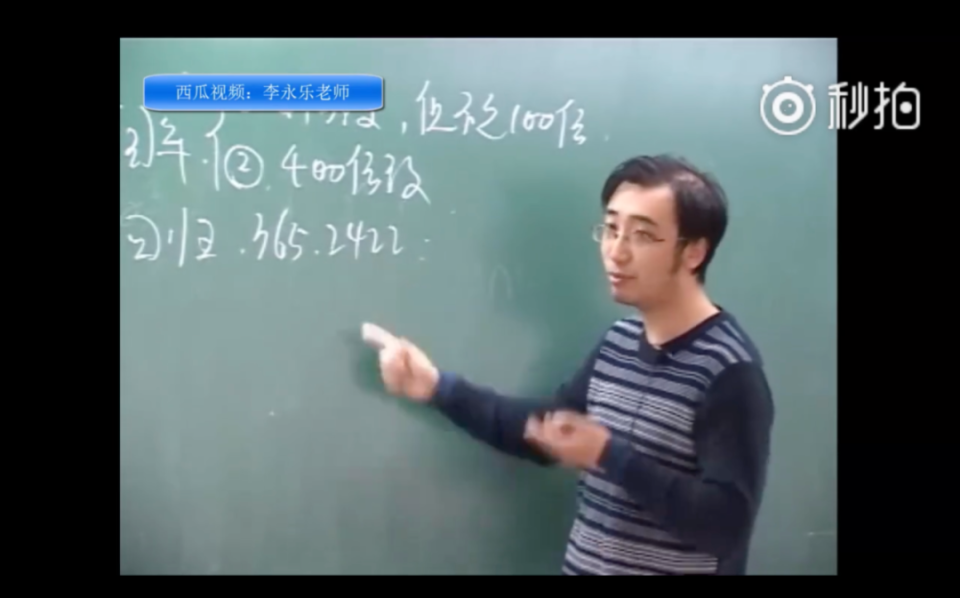 西瓜视频：李永乐老师
秒拍
，但不是100倍.
闰年.{② 400倍数
回归.365.2422: